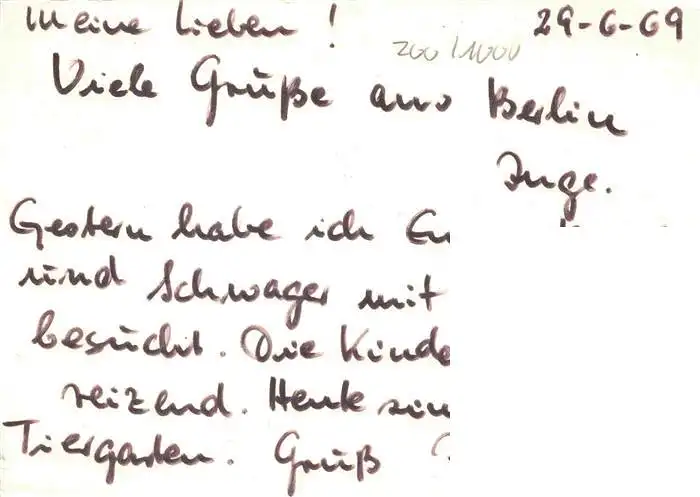 Meine Lieben! 29-6-69
200/1000
Viele Grüße aus Berlin
Inge.
Gestern habe ich
und Schwager mit
besucht. Die
reizend. Heute
Tiergarten. Gruß